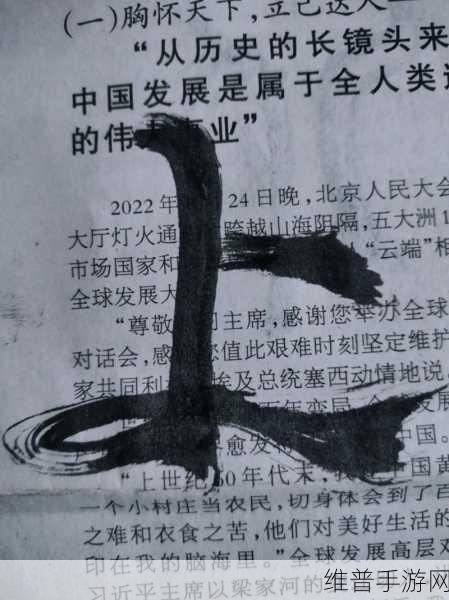 (一)胸怀天下,立己达人——
“从历史的长镜头来
中国发展是属于全人类
的伟 业”
上
2022年 24日晚,北京人民大会
大厅灯火通 跨越山海阻隔,五大洲1
市场国家和 “云端”相
全球发展大
“尊敬 主席,感谢您举办全球
对话会,感 您值此艰难时刻坚定维护
家共同利 埃及总统塞西动情地说。
百年变局 发展
愈发 中国。
“上世纪 0年代末, 中国黄
一个小村庄当农民,切身体会到了百
之难和衣食之苦,他们对美好生活的
印在我的脑海里。”全球发展高层对
习近平主席以梁家河的
维普手游网